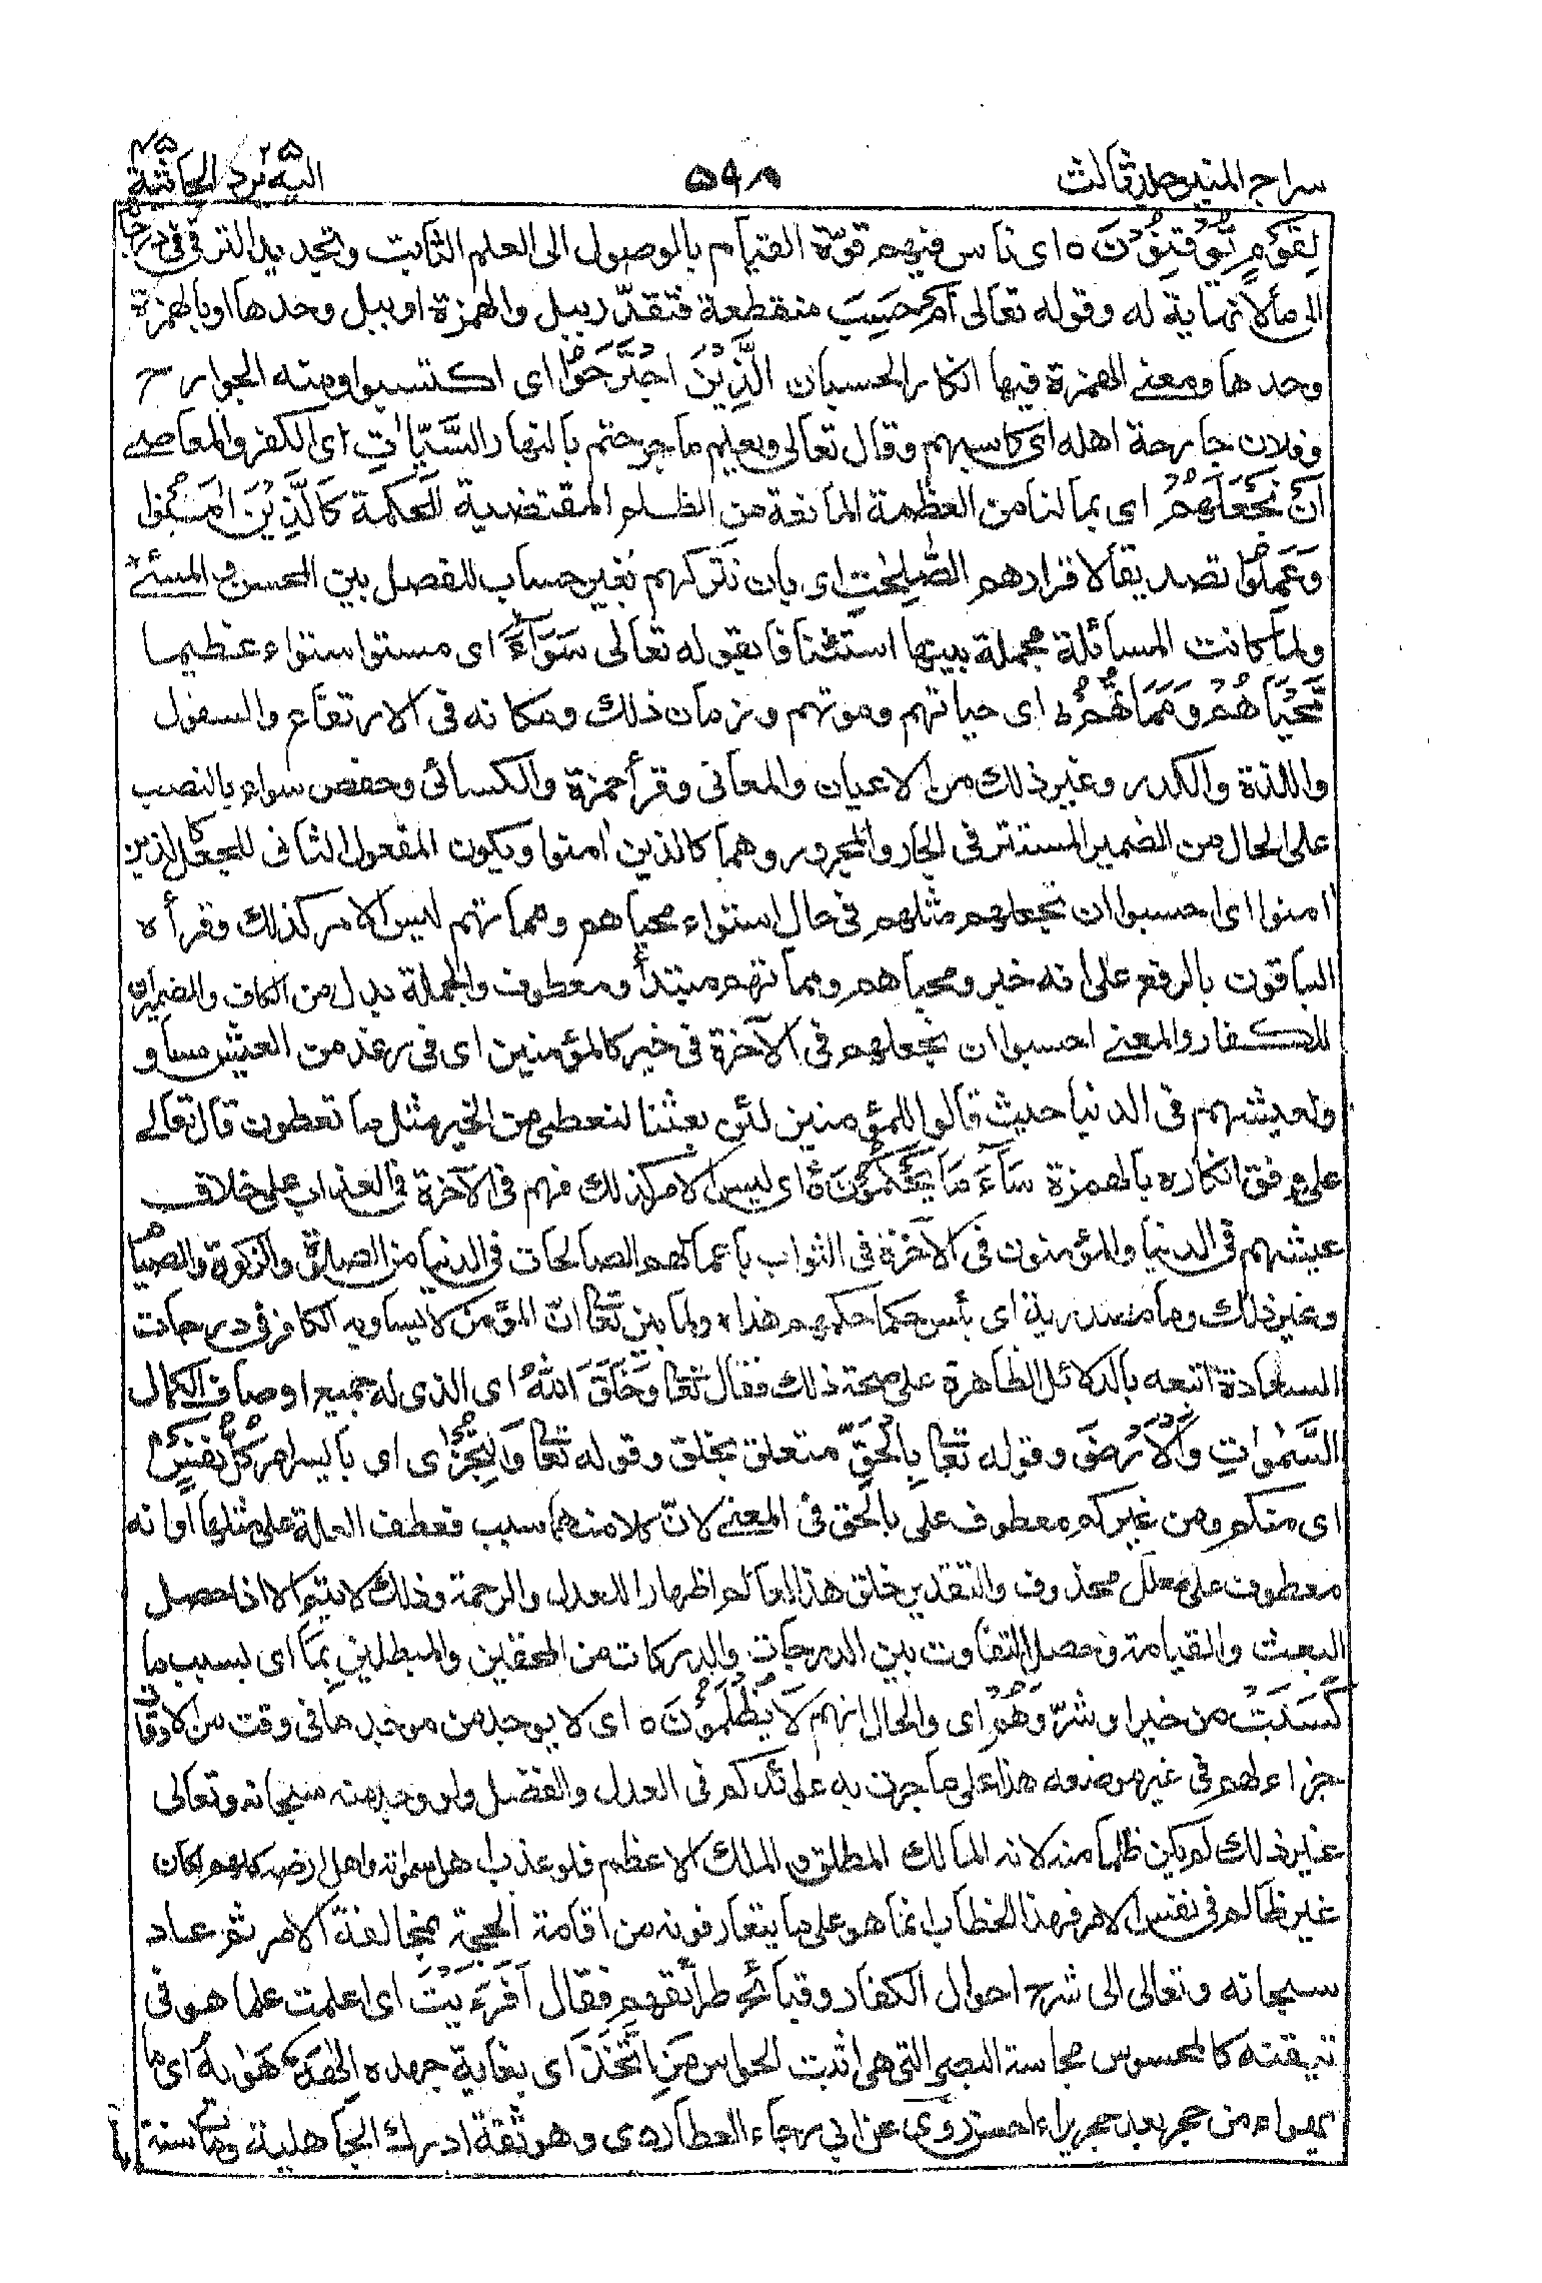 سراج المنير جلد ثالث
۵۶۸
اليه يرد ۲۵ الجاثية ۴۵
لِقَوْمٍ يُّوْقِنُوْنَ ه اى ناس فيهم قوّة القيام بالوصول الى العلم الثابت وتجديد الترقى فى درجاته
الى مالا نهاية له وقوله تعالى اَمْ حَسِبَ منقطعة فتقدّر ببل والهمزة او ببل وحدها او بالهمزة
وحدها ومعنے الهمزة فيها انكار الحسبان الَّذِيْنَ اجْتَرَحُوا اى اكتسبوا ومنه الجوارح
وفلان جارحة اهله اى كاسبهم وقال تعالى ويعلم ما جرحتم بالنهار السَّيِّاٰتِ اى الكفر والمعاصے
اَنْ نَجْعَلَهُمْ اى بما لنا من العظمة المانعة من الظلم المقتضية للحكمة كَالَّذِيْنَ اٰمَنُوْا
وَعَمِلُوا تصديقا لاقرارهم الصّٰلِحٰتِ اى بان نتركهم بغير حساب للفصل بين المحسن والمسئے
ولما كانت المسائلة مجملة بينها استئنافا بقوله تعالى سَوَآءً اى مستو استواء عظيما
مَّحْيَاهُمْ وَمَمَاتُهُمْ ط اى حياتهم وموتهم وزمان ذلك ومكانه فى الارتفاع والسفول
واللذة والكدر وغير ذلك من الاعيان والمعانى وقرأ حمزة والكسائى وحفص سواء بالنصب
على الحال من الضمير المستتر فى الجار والمجرور وهما كالذين اٰمنوا ويكون المفعول الثانى للجعل كالذين
اٰمنوا اى احسبوا ان نجعلهم مثلهم فى حال استواء محياهم ومماتهم ليس الامر كذلك وقرأ ه
الباقون بالرفع على انه خبر ومحياهم ومماتهم مبتدأ ومعطوف والجملة بدل من الكاف والضميران
للكفار والمعنے احسبوا ان نجعلهم فى الآخرة فى خير كالمؤمنين اى فى رغد من العيش مساو
ولعيشهم فى الدنيا حيث قالوا للمؤمنين لئن بعثنا لنعطى من الخير مثل ما تعطون قال تعالے
على وفق انكاره بالهمزة سَآءَ مَا يَحْكُمُوْنَ ه اى ليس الامر كذلك فهم فى الآخرة فى العذاب على خلاف
عيشهم فى الدنيا والمؤمنون فى الآخرة فى الثواب باعمالهم الصالحات فى الدنيا من الصلوة والزكوة والصيام
وغير ذلك وما مصدرية اى بئس حكما حكمهم هذا ولما بين تعا انّ المؤمن لا يساويه الكافر فى درجات
السعادة اتبعه بالدلائل الظاهرة على صحة ذلك فقال تعا وَخَلَقَ اللّٰهُ اى الذى له جميع اوصاف الكمال
السَّمٰوٰتِ وَالْاَرْضَ وقوله تعا بِالْحَقِّ متعلق بخلق وقوله تعا وَلِتُجْزٰى اى بايسر امر كُلُّ نَفْسٍ
اى منكم ومن غيركم معطوف على بالحق فى المعنے لانّ كلا منهما سبب فعطف العلة على مثلها او انه
معطوف على معلّل محذوف والتقدير خلق هذا العالم اظهارا للعدل والرحمة وذلك لا يتم الا اذا حصل
البعث والقيامة وحصل التفاوت بين الدرجات والدركات من المحقين والمبطلين بِمَا اى بسبب ما
كَسَبَتْ من خير او شرّ وَهُمْ اى والحال انهم لَا يُظْلَمُوْنَ ه اى لا يوجد من موجد ما فى وقت من الاوقات
جزاء لهم فى غير موضعه هذا على ما جرت به عوائدكم فى العدل والفضل ولو وجد منه سبحانه وتعالى
غير ذلك لم يكن ظلما منه لانه المالك المطلق والملك الاعظم فلو عذب اهل سمواته واهل ارضه كلهم لكان
غير ظالم فى نفس الامر فهذا الخطاب انما هو على ما يتعارفونه من اقامة الحجة بمخالفة الامر ثم عاد
سبحانه وتعالى الى شرح احوال الكفار وقبائح طرائقهم فقال اَفَرَءَيْتَ اى اعلمت علما هو فى
تيقنه كالمحسوس بحاسة البصر التى هى اثبت الحواس مَنِ اتَّخَذَ اى بغاية جهده اِلٰهَهٗ هَوٰىهُ اى ما
يهواه من حجر بعد حجر يراه احسن روى عن ابى رجاء العطاردى وهو ثقة ادرك الجاهلية ومات سنة